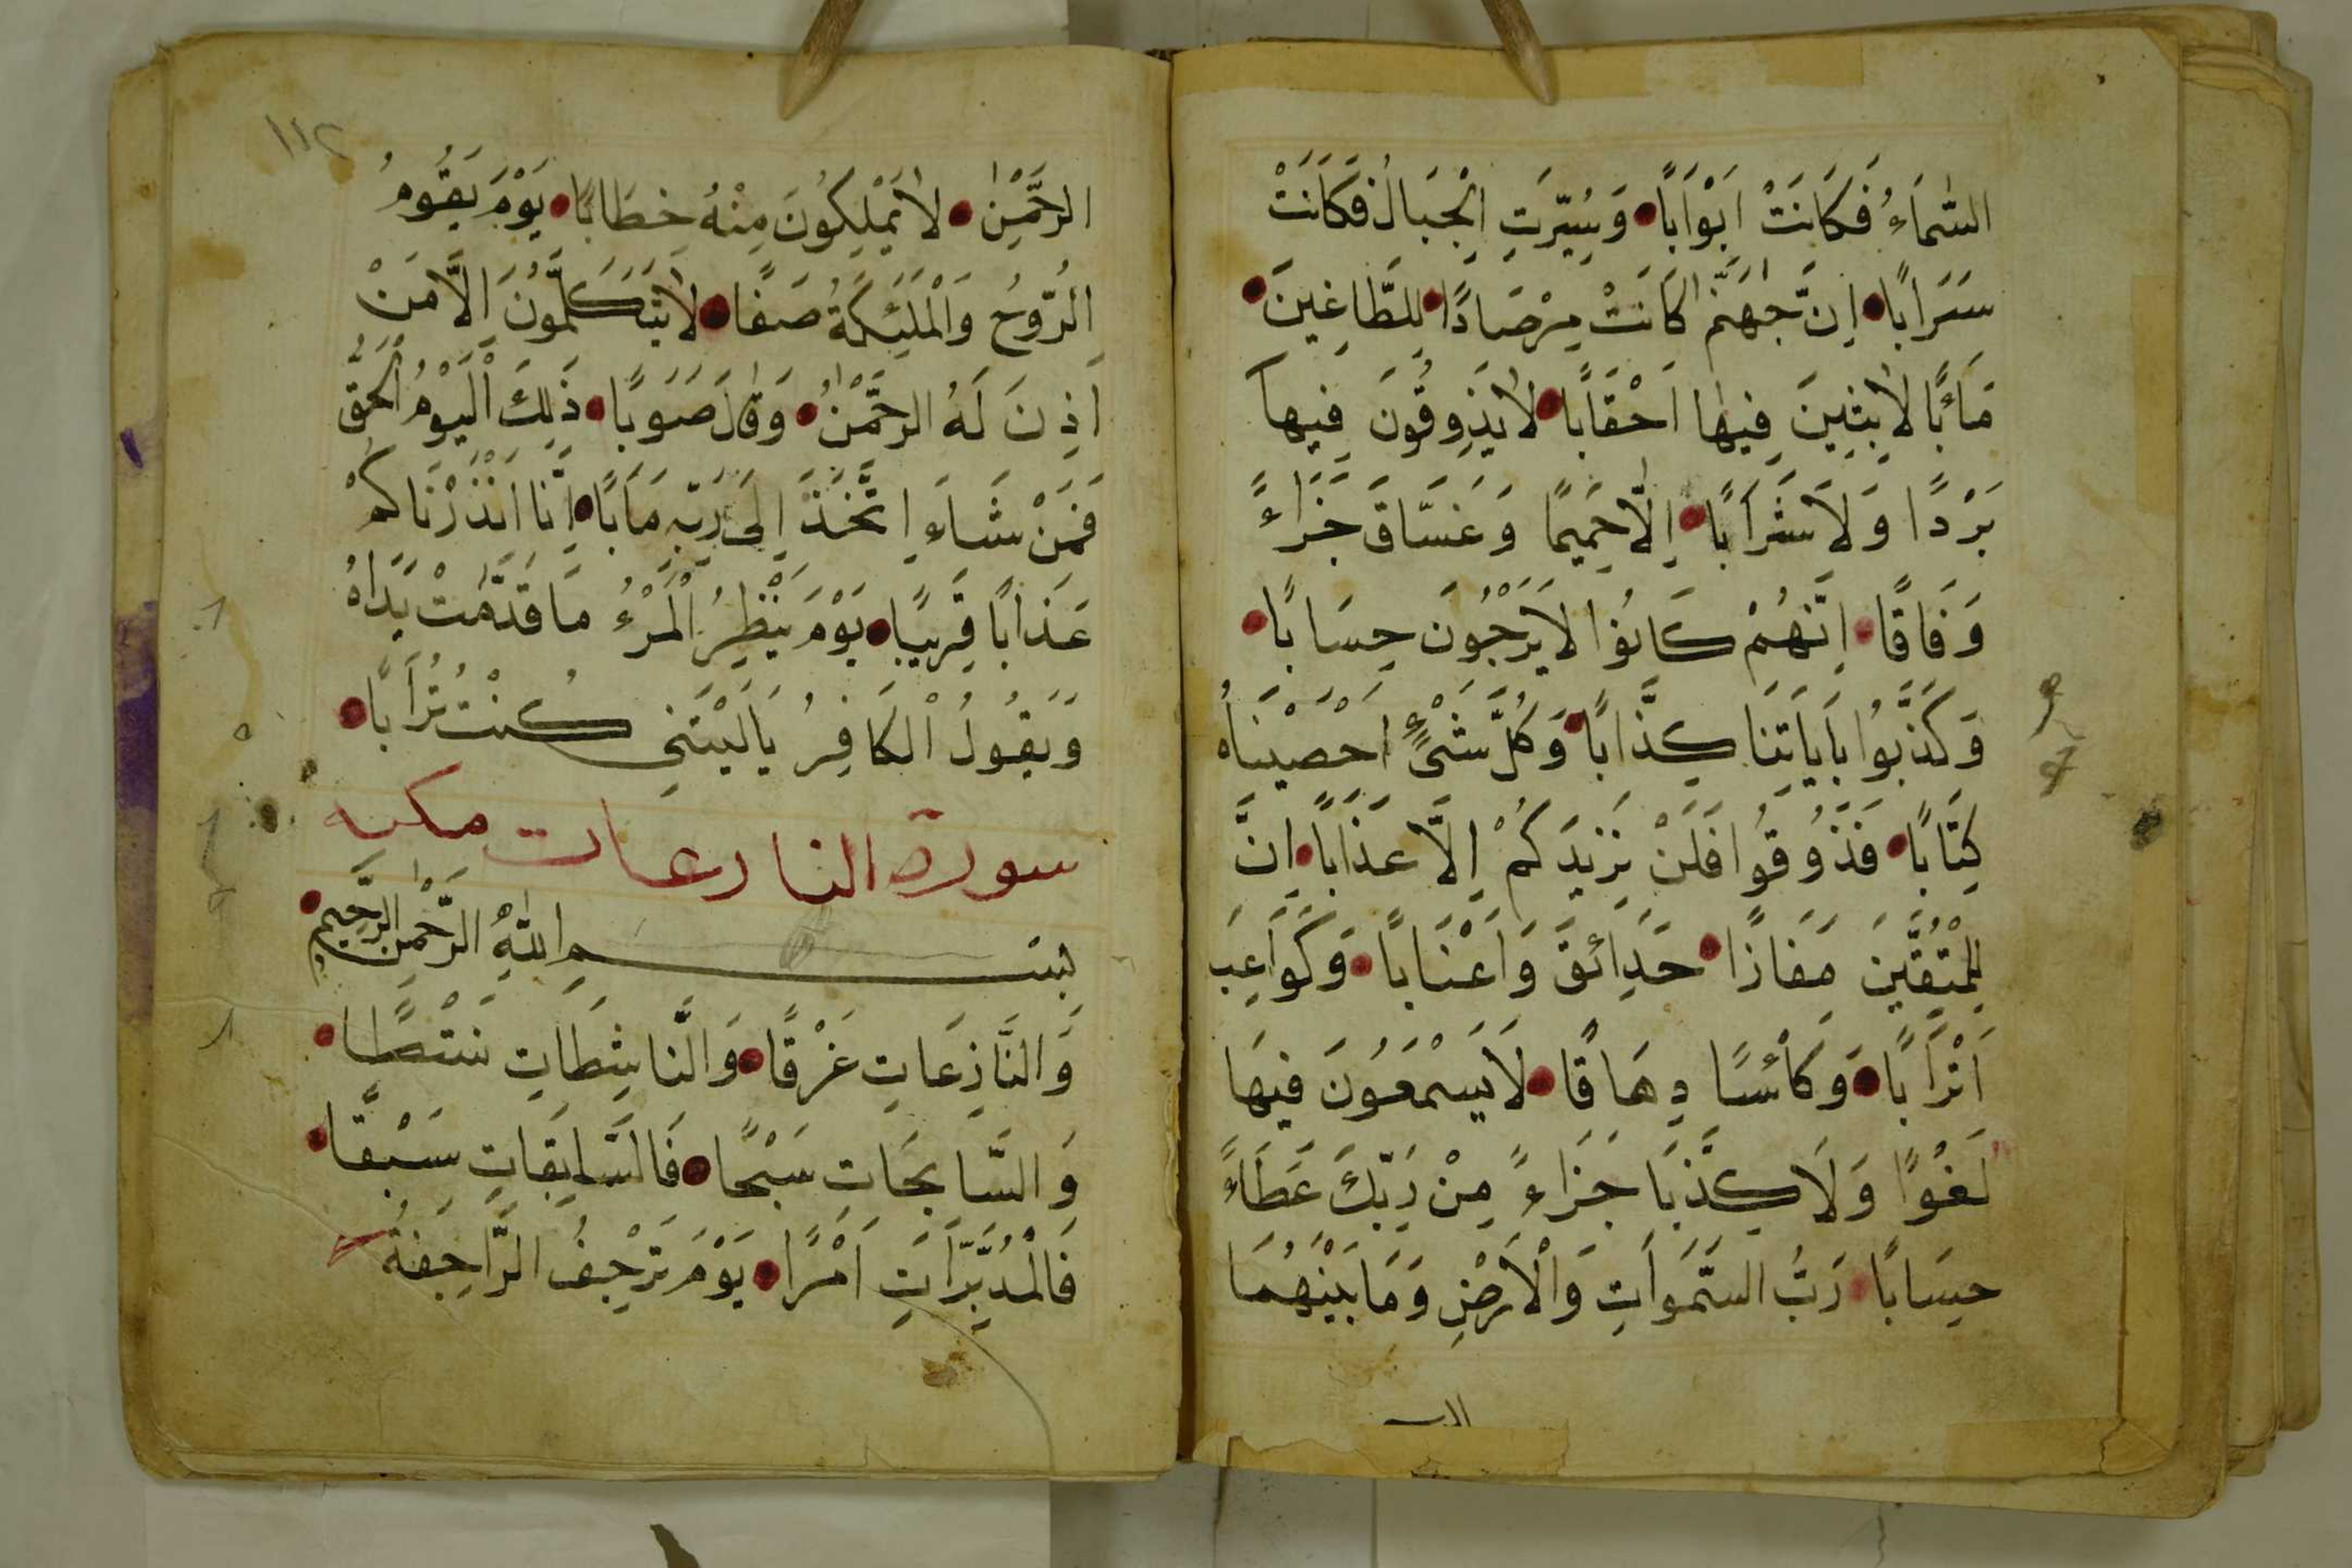 السَّمَاءُ فَكَانَتْ اَبْوَاباً وَسُيِّرَتِ الْجِبَالُ فَكَانَتْ
سَرَابًا اِنَّ جَهَنَّمَ كَانَتْ مِرْصَادًا لِلطَّاغِينَ
مَاٰبًا لَابِثِينَ فِيهَا اَحْقَابًا لَا يَذُوقُونَ فِيهَا
بَرْدًا وَلَا شَرَابًا اِلَّا حَمِيمًا وَغَسَّاقَ جَزَاءً
وَفَاقًا اِنَّهُمْ كَانُوا لَا يَرْجُونَ حِسَابًا
وَكَذَّبُوا بِاَيَاتِنَا كِذَّابًا وَكُلَّ شَىْءٍ اَحْصَيْنَاهُ
كِتَابًا فَذُوقُوا فَلَنْ نَزِيدَكُمْ اِلَّا عَذَابًا اِنَّ
لِلْمُتَّقِينَ مَفَازًا حَدَائِقَ وَاَعْنَابًا وَكَوَاعِبَ
اَتْرَابًا وَكَأْسًا دِهَاقًا لَا يَسْمَعُونَ فِيهَا
لَغْوًا وَلَا كِذَّبَا جَزَاءً مِنْ رَبِّكَ عَطَاءً
حِسَابًا رَبُّ السَّمَوَاتِ وَالْاَرْضِ وَمَا بَيْنَهُمَا
١١٢
الرَّحْمٰنِ لَا يَمْلِكُونَ مِنْهُ خِطَابًا يَوْمَ يَقُومُ
الرُّوحُ وَالْمَلٰئِكَةُ صَفًّا لَا يَتَكَلَّمُونَ اِلَّا مَنْ
اَذِنَ لَهُ الرَّحْمٰنُ وَقَالَ صَوَبًا ذَلِكَ الْيَوْمُ الْحَقُّ
فَمَنْ شَاءَ اتَّخَذَ اِلَى رَبِّهِ مَاَبًا اِنَّا اَنْذَرْنَاكُمْ
عَذَابًا قَرِيبًا يَوْمَ يَنْظُرُ الْمَرْءُ مَا قَدَّمَتْ يَدَاهُ
وَيَقُولُ الْكَافِرُ يَالَيْتَنِي كُنْتُ تُرَابًا
سورة النارعات مكيه
بِسْمِ اللّٰهِ الرَّحْمٰنِ الرَّحِيمِ
وَالنَّازِعَاتِ غَرْقًا وَالنَّاشِطَاتِ نَشْطًا
وَالسَّابِحَاتِ سَبْحًا فَالسَّابِقَاتِ سَبْقًا
فَالْمُدَبِّرَاتِ اَمْرًا يَوْمَ تَرْجُفُ الرَّاجِفَةُ